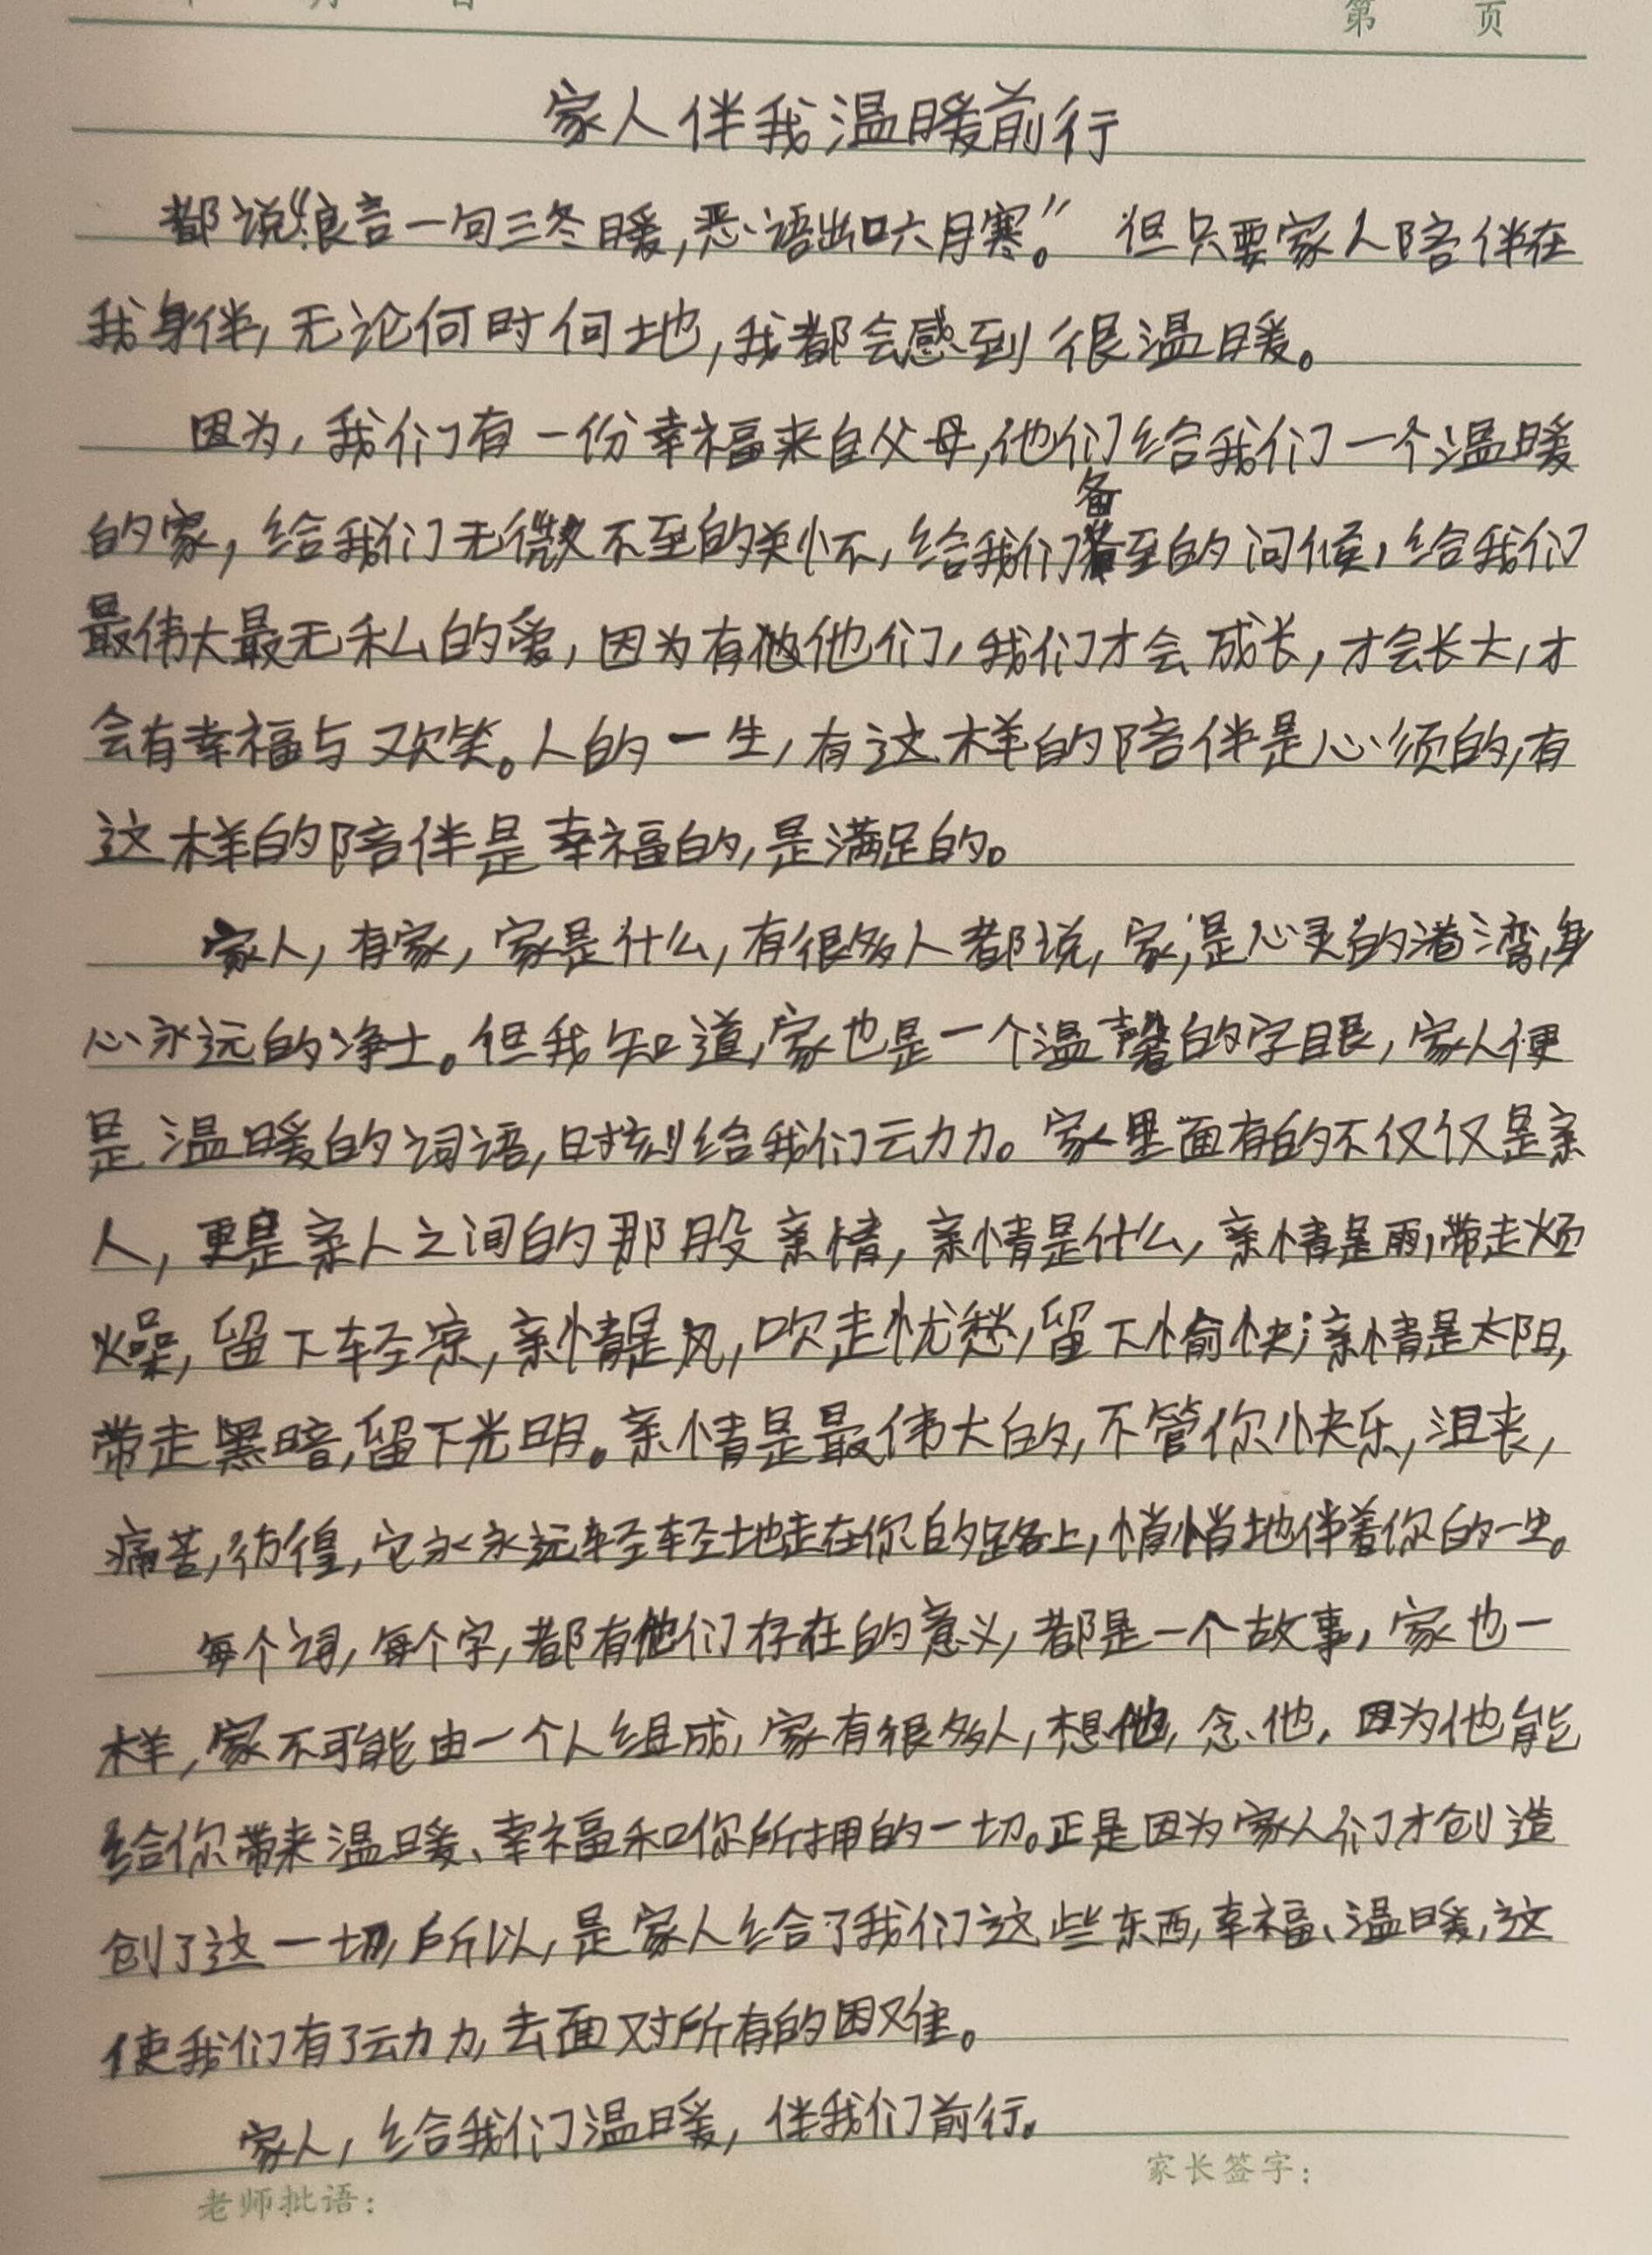 年 月 日 第 页
家人伴我温暖前行
都说“良言一句三冬暖,恶语出口六月寒。”但只要家人陪伴在
我身伴,无论何时何地,我都会感到很温暖。
因为,我们有一份幸福来自父母,他们给我们一个温暖
的家,给我们无微不至的关怀,给我们备至的问候,给我们
最伟大最无私的爱,因为有他他们,我们才会成长,才会长大,才
会有幸福与欢笑。人的一生,有这样的陪伴是必须的,有
这样的陪伴是幸福的,是满足的。
家人,有家,家是什么,有很多人都说,家,是心灵的港湾,身
心永远的净土。但我知道,家也是一个温馨的字眼,家人便
是温暖的词语,时刻给我们动力。家里面有的不仅仅是亲
人,更是亲人之间的那股亲情,亲情是什么,亲情是雨,带走烦
燥,留下轻凉,亲情是风,吹走忧愁,留下愉快;亲情是太阳,
带走黑暗,留下光明。亲情是最伟大的,不管你快乐,沮丧,
痛苦,彷徨,它永永远轻轻地走在你的路上,悄悄地伴着你的一生。
每个词,每个字,都有他们存在的意义,都是一个故事,家也一
样,家不可能由一个人组成,家有很多人,想他,念他,因为他能
给你带来温暖、幸福和你所拥的一切。正是因为家人们才创造
创了这一切,所以,是家人给了我们这些东西,幸福、温暖,这
使我们有了动力,去面对所有的困难。
家人,给我们温暖,伴我们前行。
家长签字:
老师批语: